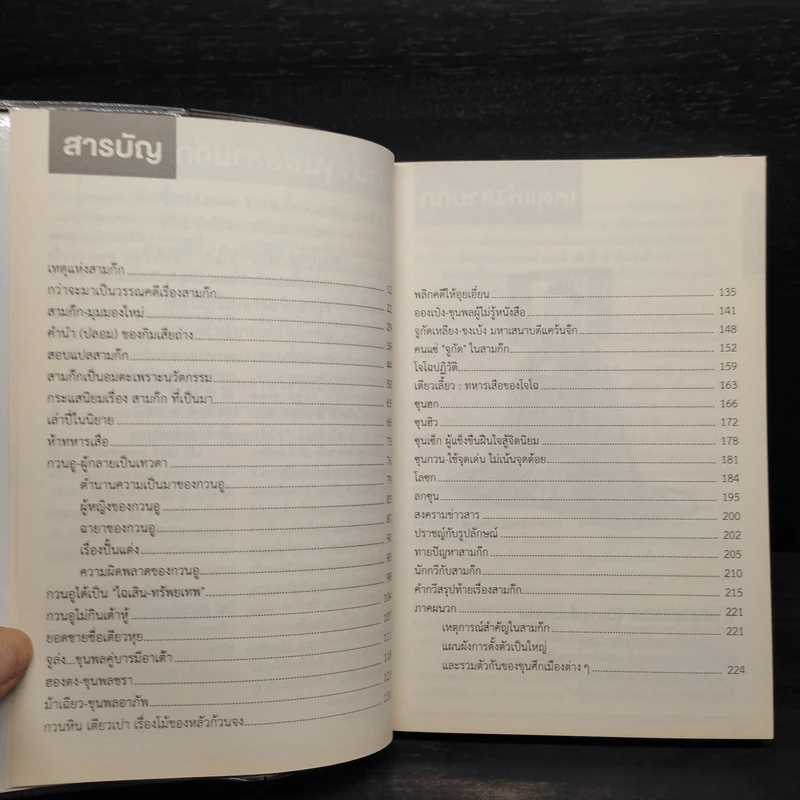 สารบัญ
เหตุแห่งสามก๊ก
กว่าจะมาเป็นวรรณคดีเรื่องสามก๊ก
สามก๊ก-มุมมองใหม่
คำนำ (ปลอม) ของกิมเสียถ่าง
สอบแปลสามก๊ก
สามก๊กเป็นอมตะเพราะนวัตกรรม
กระแสนิยมเรื่อง สามก๊ก ที่เป็นมา
เล่าปี่ในนิยาย
ห้าทหารเสือ
กวนอู-ผู้กลายเป็นเทวดา
ตำนานความเป็นมาของกวนอู
ผู้หญิงของกวนอู
ฉายาของกวนอู
เรื่องปั้นแต่ง
ความผิดพลาดของกวนอู 98
กวนอูได้เป็น "ไฉเสิน-ทรัพยเทพ" 104
กวนอูไม่กินเต้าหู้ 107
ยอดชายชื่อเตียวหุย
จูล่ง...ขุนพลคู่บารมีอาเต๊า
ฮองตง-ขุนพลชรา
ม้าเฉียว-ขุนพลอาภัพ
กวนหิน เตียวเปา เรื่องโม้ของหลัวก้วนจง
พลิกคดีให้อุยเอี๋ยน 135
อองเป๋ง-ขุนพลผู้ไม่รู้หนังสือ 141
จูกัดเหลียง-ขงเบ้ง มหาเสนาบดีแคว้นจ๊ก 148
คนแซ่ "จูกัด" ในสามก๊ก 152
โจโฉปฏิวัติ 159
เตียวเลี้ยว : ทหารเสือของโจโฉ 163
ซุนฮก 166
ซุนฮิว 172
ซุนเซ็ก ผู้แข็งขืนฝืนใจสู้จิตนิยม 178
ซุนกวน-ใช้จุดเด่น ไม่เน้นจุดด้อย 181
โลซก 184
ลกซุน 195
สงครามข่าวสาร 200
ปราชญ์กับรูปลักษณ์ 202
ทายปัญหาสามก๊ก 205
นักกวีกับสามก๊ก 210
คำกวีสรุปท้ายเรื่องสามก๊ก 215
ภาคผนวก 221
เหตุการณ์สำคัญในสามก๊ก 221
แผนผังการตั้งตัวเป็นใหญ่
และรวมตัวกันของขุนศึกเมืองต่าง ๆ 224